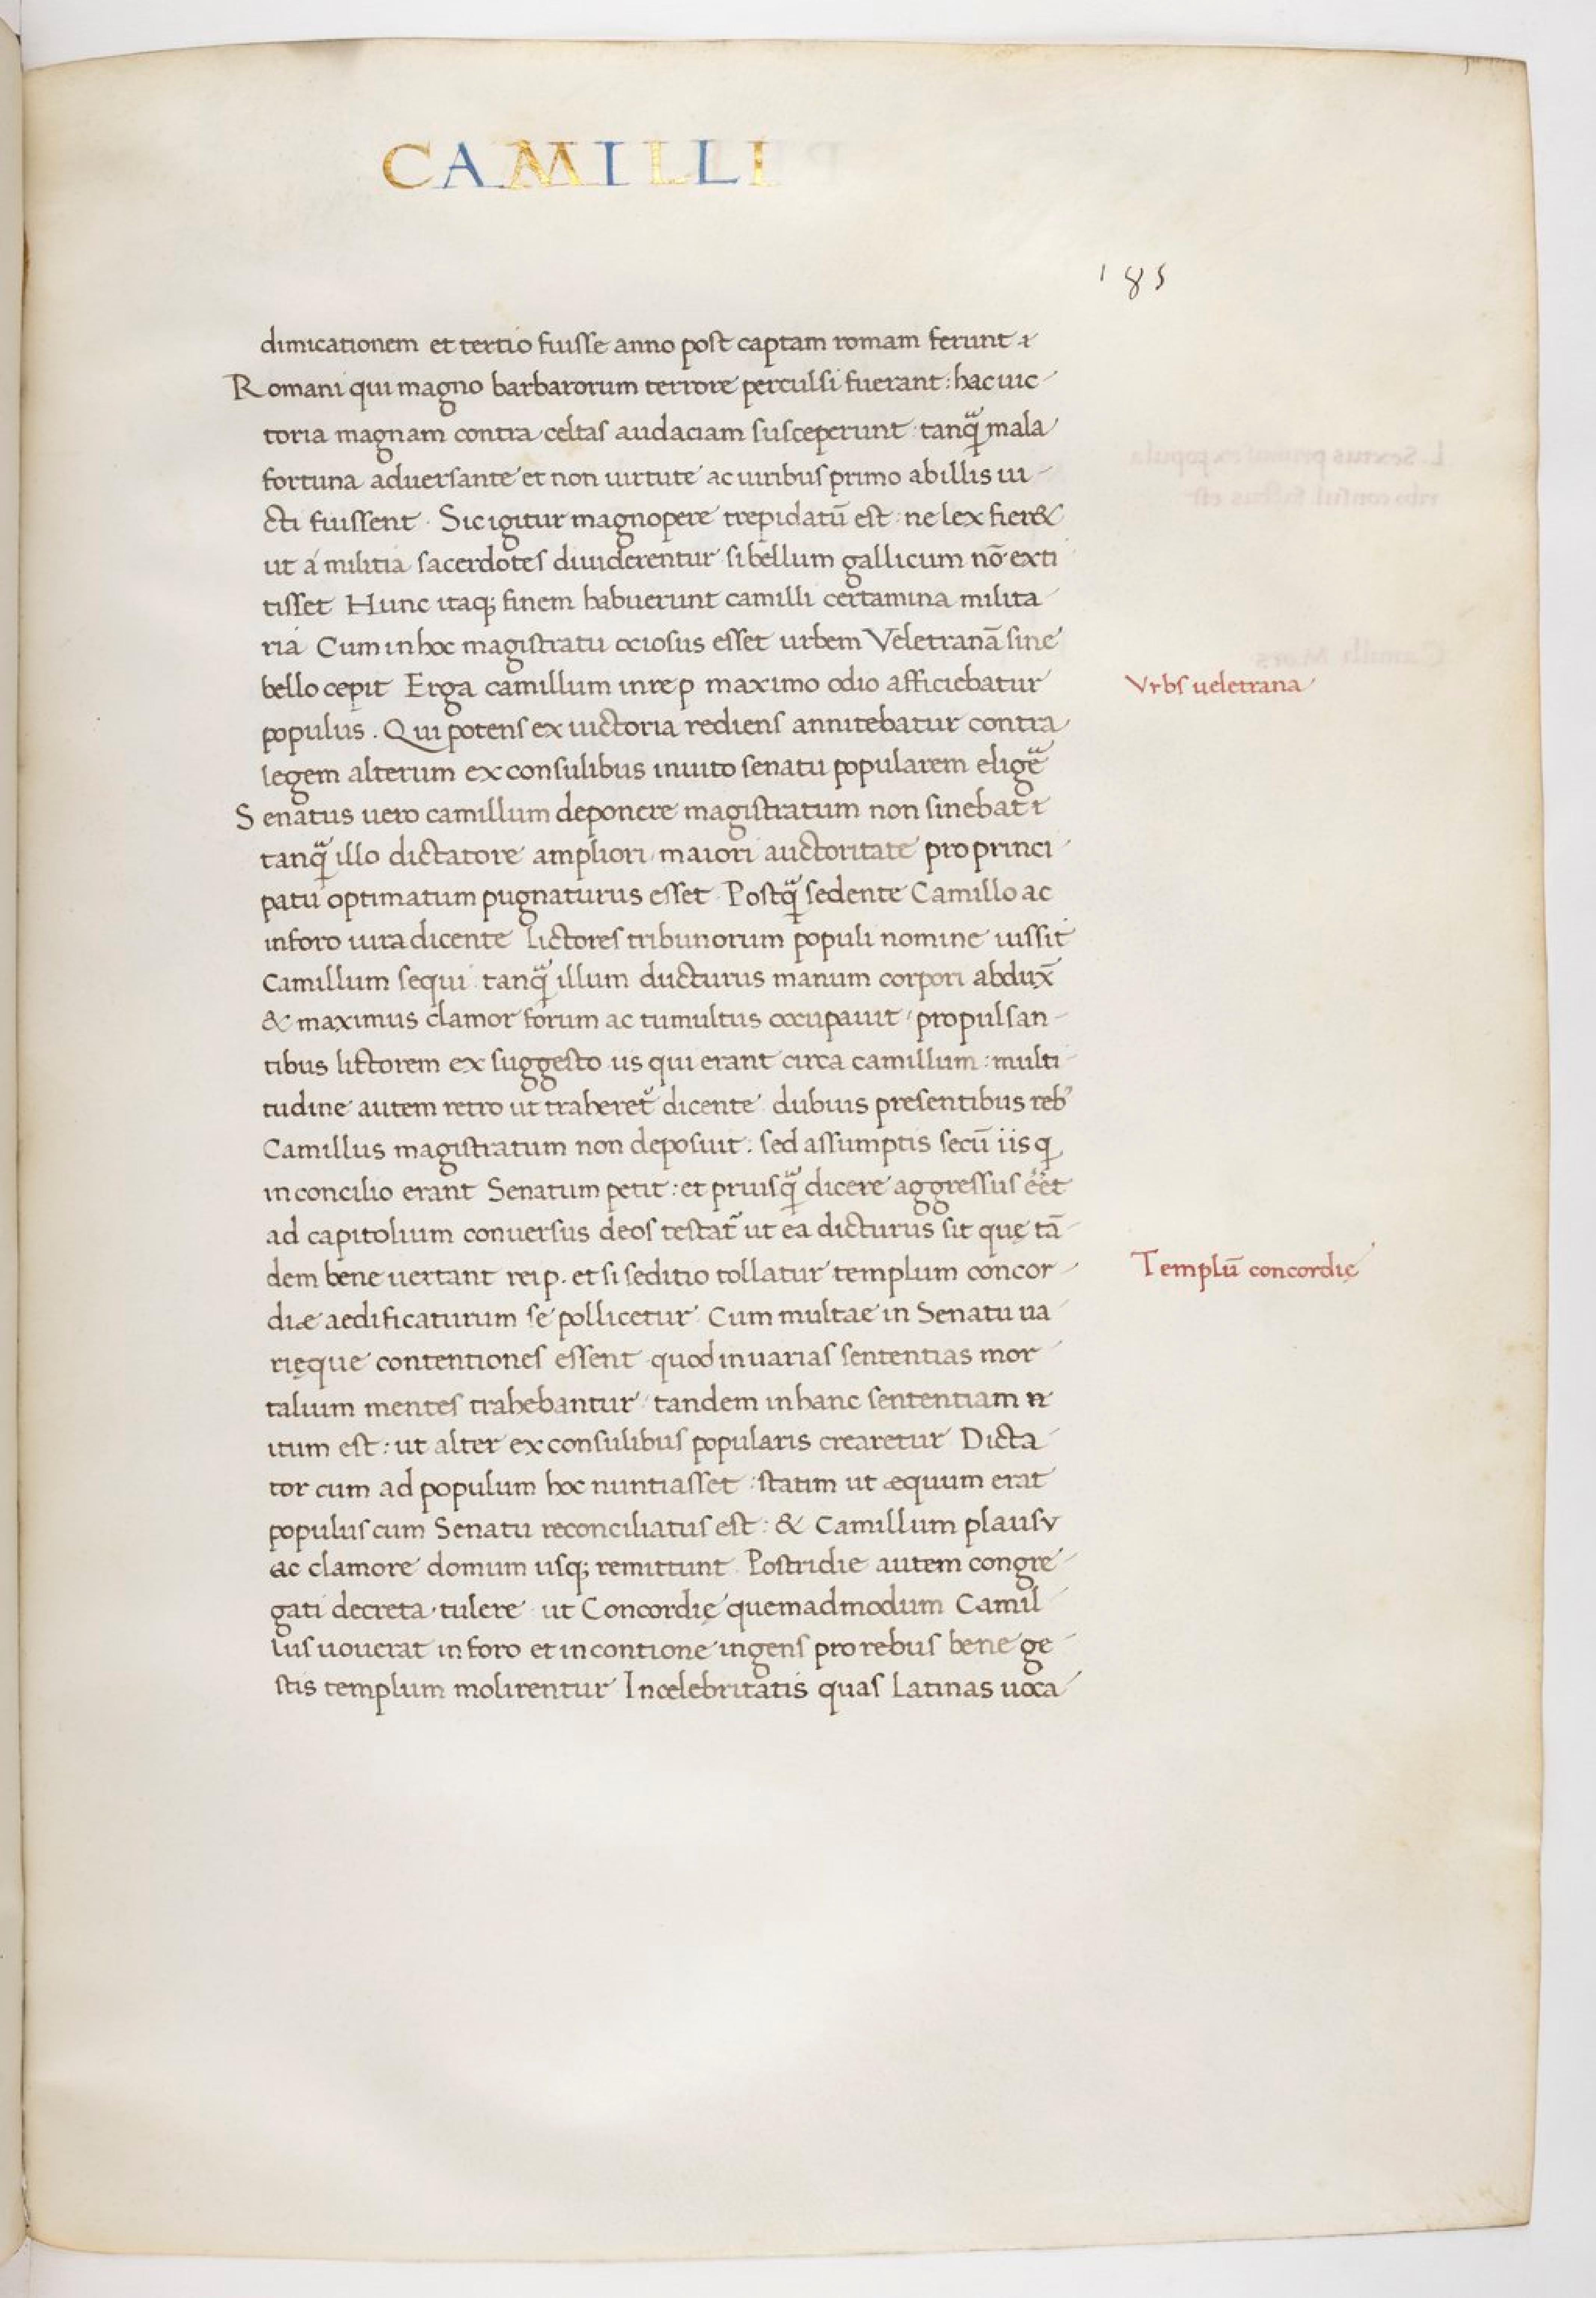 CAMILLI
185
dimicationem et tertio fuisse anno post captam romam ferunt
Romani qui magno barbarorum terrore perculsi fuerant: hac uic
toria magnam contra celtas audaciam susceperunt tanq̃ mala
fortuna aduersante et non uirtute ac uiribus primo ab illis ui
cti fuissent. Sic igitur magnopere trepidatū est: ne lex fier&
ut á militia sacerdotes diuiderentur si bellum gallicum nō exti
tisset Hunc itaq; finem habuerunt camilli certamina milita
ria Cum in hoc magistratu ociosus esset urbem Veletranā sine
bello cepit Erga camillum in re p maximo odio afficiebatur
Vrbs ueletrana
populus. Qui potens ex uictoria rediens annitebatur contra
legem alterum ex consulibus inuito senatu popularem eligē
Senatus uero camillum deponere magistratum non sinebat
tanq̃ illo dictatore ampliori maiori auctoritate pro princi
patu optimatum pugnaturus esset. Postq̃ sedente Camillo ac
in foro iura dicente Lictores tribunorum populi nomine iussit
Camillum sequi tanq̃ illum ducturus manum corpori abdux̄
& maximus clamor forum ac tumultus occupauit propulsan
tibus littorem ex suggesto iis qui erant circa camillum: multi
tudine autem retro ut traheret̃ dicente dubiis presentibus reb'
Camillus magistratum non deposuit: sed assumptis secū iis q
in concilio erant Senatum petit: et priusq̃ dicere aggressus ēēt
ad capitolium conuersus deos testat̃ ut ea dicturus sit quę tā
dem bene uertant reip. et si seditio tollatur templum concor
Templū concordię
diæ aedificaturum se pollicetur Cum multae in Senatu ua
rięque contentiones essent quod in uarias sententias mor
talium mentes trahebantur tandem in hanc sententiam
itum est: ut alter ex consulibus popularis crearetur Dicta
tor cum ad populum hoc nuntiasset: statim ut æquum erat
populus cum Senatu reconciliatus est: & Camillum plausv
ac clamore domum usq; remittunt Postridie autem congre
gati decreta tulere ut Concordię quemadmodum Camil
lus uouerat in foro et in contione ingens pro rebus bene ge
stis templum molirentur In celebritatis quas Latinas uoca